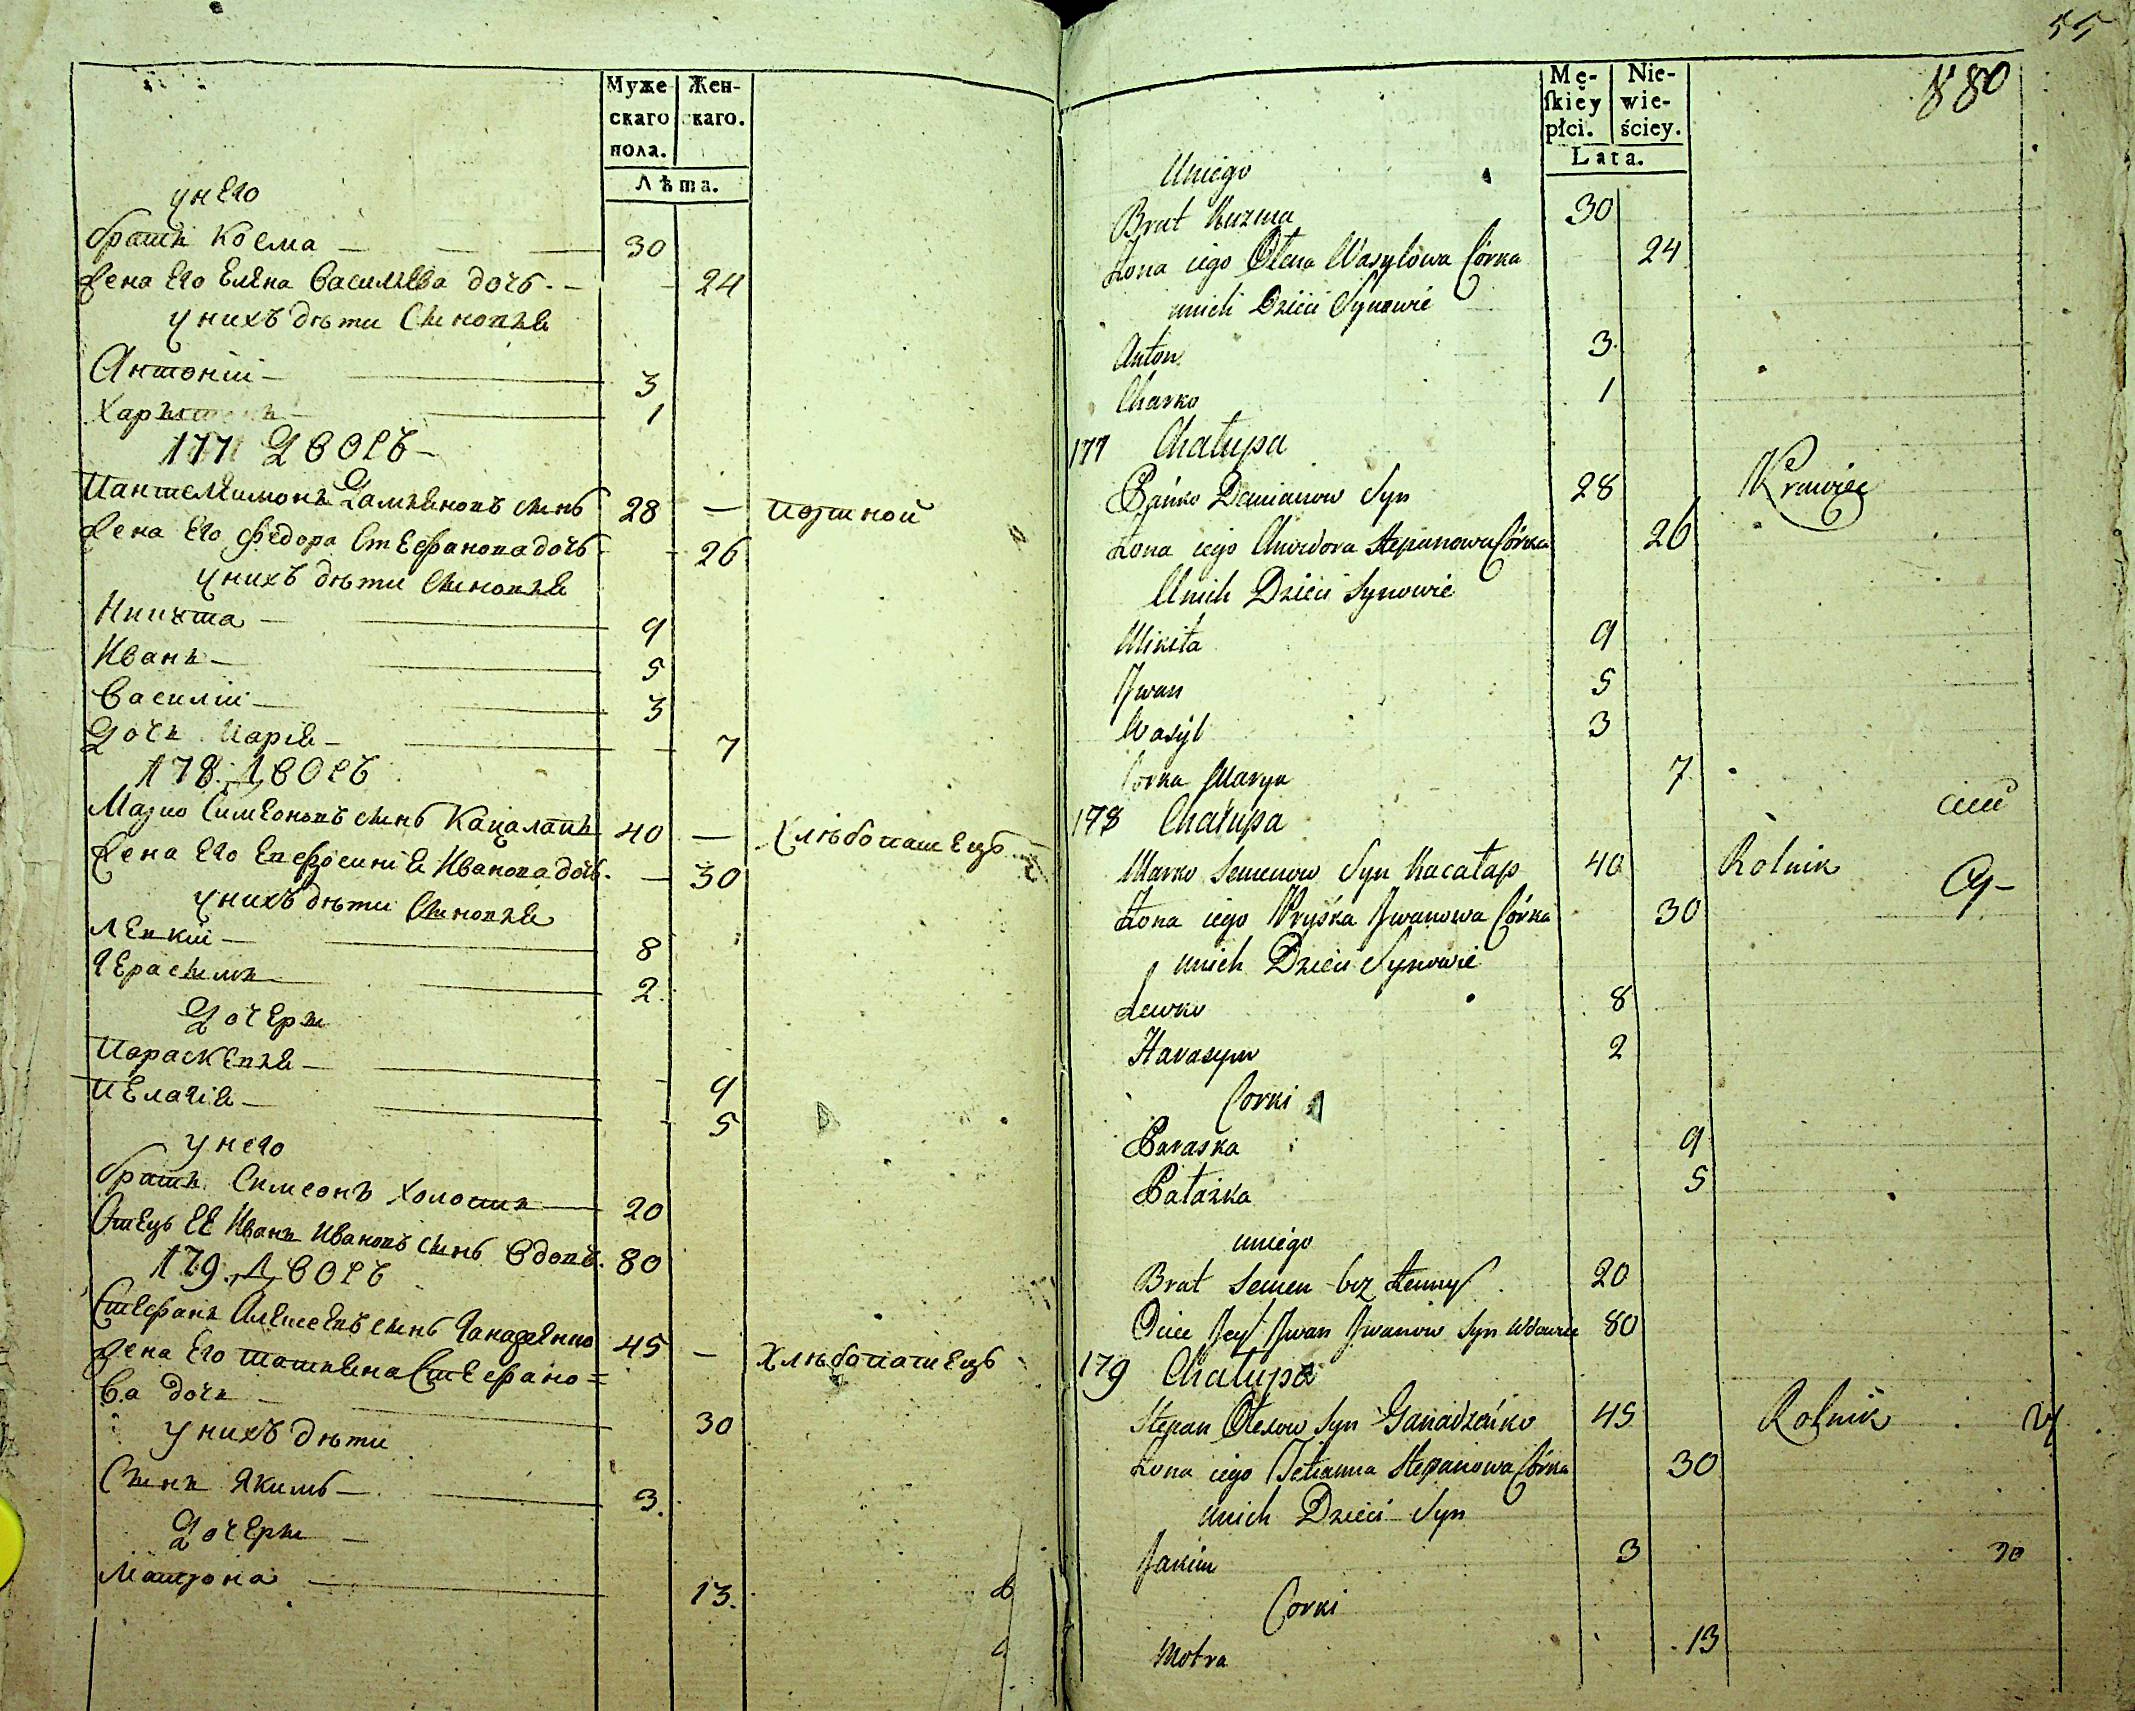 Муже
скаго
пола.
Жен-
скаго.
Лѣта.
у него
братъ Косма — 30
жена его Елена Василиева дочь - 24
у нихъ дѣти сыновья
Антоній — 3
Харитонъ — 1
177 Дворъ
Пантелеимонъ Дамиановъ сынъ 28 — портной
жена его Федора Стефанова дочь - 26
у нихъ дѣти сыновья
Никита — 9
Иванъ — 5
Василій — 3
Дочь Марія — 7
178 Дворъ
Марко Симеоновъ сынъ Кацапапъ 40 — хлѣбопашецъ
жена его Евфросинія Иванова дочь. — 30
у нихъ дѣти сыновья
Левкій — 8
Герасимъ 2.
Дочери
Параскевія — 9
Пелагія — 5
у него
братъ Симеонъ холостъ 20
Отецъ ее Иванъ Ивановъ сынъ вдовъ. 80
179 Дворъ
Стефанъ Алексеевъ сынъ 45 — хлѣбопашецъ
жена его Татиана Стефано=
ва дочь — 30
у нихъ дѣти
Сынъ Якимъ — 3.
Дочери —
Матрона — 13.
55
880
Mę-
skiey
płci.
Nie-
wie-
ściey.
Lata.
Uniego
Brat Kuzma 30
Żona iego Olena Wasylowa Córka 24
unich Dzieci Synowie
Anton 3.
Charko 1
177 Chałupa
Pańko Demianow Syn 28 Krawiec
Żona iego Chwedora Stepanowa Córka 26
Unich Dzieci Synowie
Mikita 9
Jwan 5
Wasyl 3
Corka Marya 7
178 Chałupa
Marko Semenow Syn Kacałap 40 Rolnik
Żona iego Pryśka Jwanowa Córka 30
unich Dzieci Synowie
Lewko 8
Harasym 2
Corki
Paraska 9
Pałażka 5
uniego
Brat Semen bez Żenny 20
Ociec Jey Jwan Jwanow Syn Wdowiec 80
179 Chałupa
Stepan Olexow Syn Ganadzeńko 45 Rolnik
Żona iego Tetianna Stepanowa Córka 30
unich Dzieci Syn
Jakim 3
Corki
Motra 13